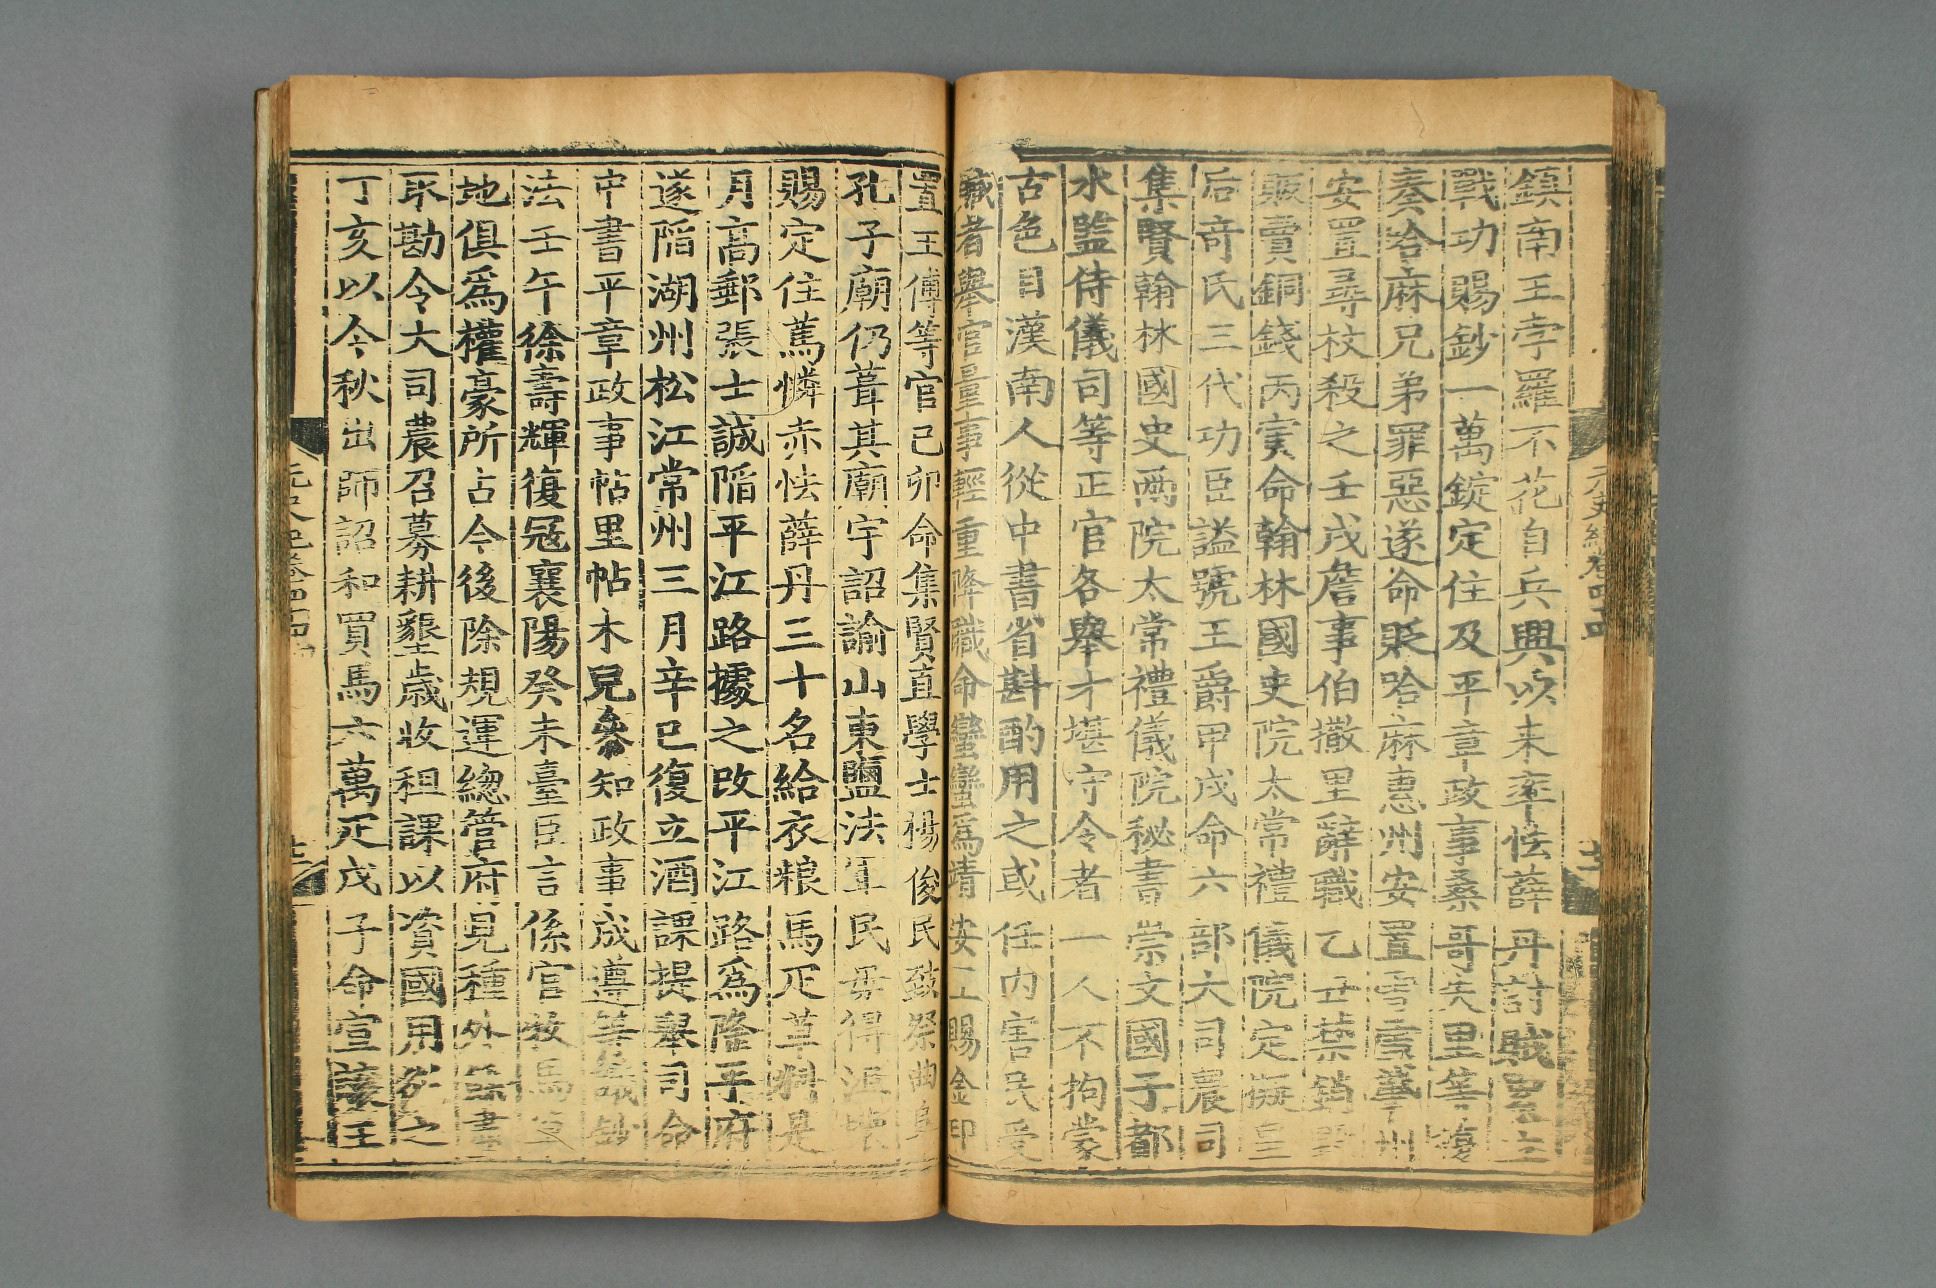 鎮南王孛羅不花自兵興以來率怯薛丹討賊累立
戰功賜鈔一萬錠定住及平章政事桑哥失里等復
奏哈麻兄弟罪惡遂命貶哈麻惠州安置雪雪肇州
安置尋杖殺之壬戌詹事伯撒里辭職乙丑禁銷毀
販賣銅錢丙寅命翰林國史院太常禮儀院定擬皇
后奇氏三代功臣謚號王爵甲戌命六部大司農司
集賢翰林國史兩院太常禮儀院秘書崇文國子都
水監侍儀司等正官各舉才堪守令者一人不拘蒙
古色目漢南人從中書省斟酌用之或任內害民受
贓者舉官量事輕重降職命蠻蠻為靖安王賜金印
置王傅等官己卯命集賢直學士楊俊民致祭曲阜
孔子廟仍葺其廟宇詔諭山東鹽法軍民毋得沮壞
賜定住篤憐赤怯薛丹三十名給衣粮馬疋草料是
月高郵張士誠陷平江路據之改平江路為隆平府
遂陷湖州松江常州三月辛巳復立酒課提舉司命
中書平章政事帖里帖木兒參知政事成遵等議鈔
法壬午徐壽輝復冦襄陽癸未臺臣言係官牧馬草
地俱為權豪所占今後除規運總管府見種外餘盡
取勘令大司農召募耕墾歲收租課以資國用從之
丁亥以今秋出師詔和買馬六萬疋戊子命宣讓王
元史紀卷四十四